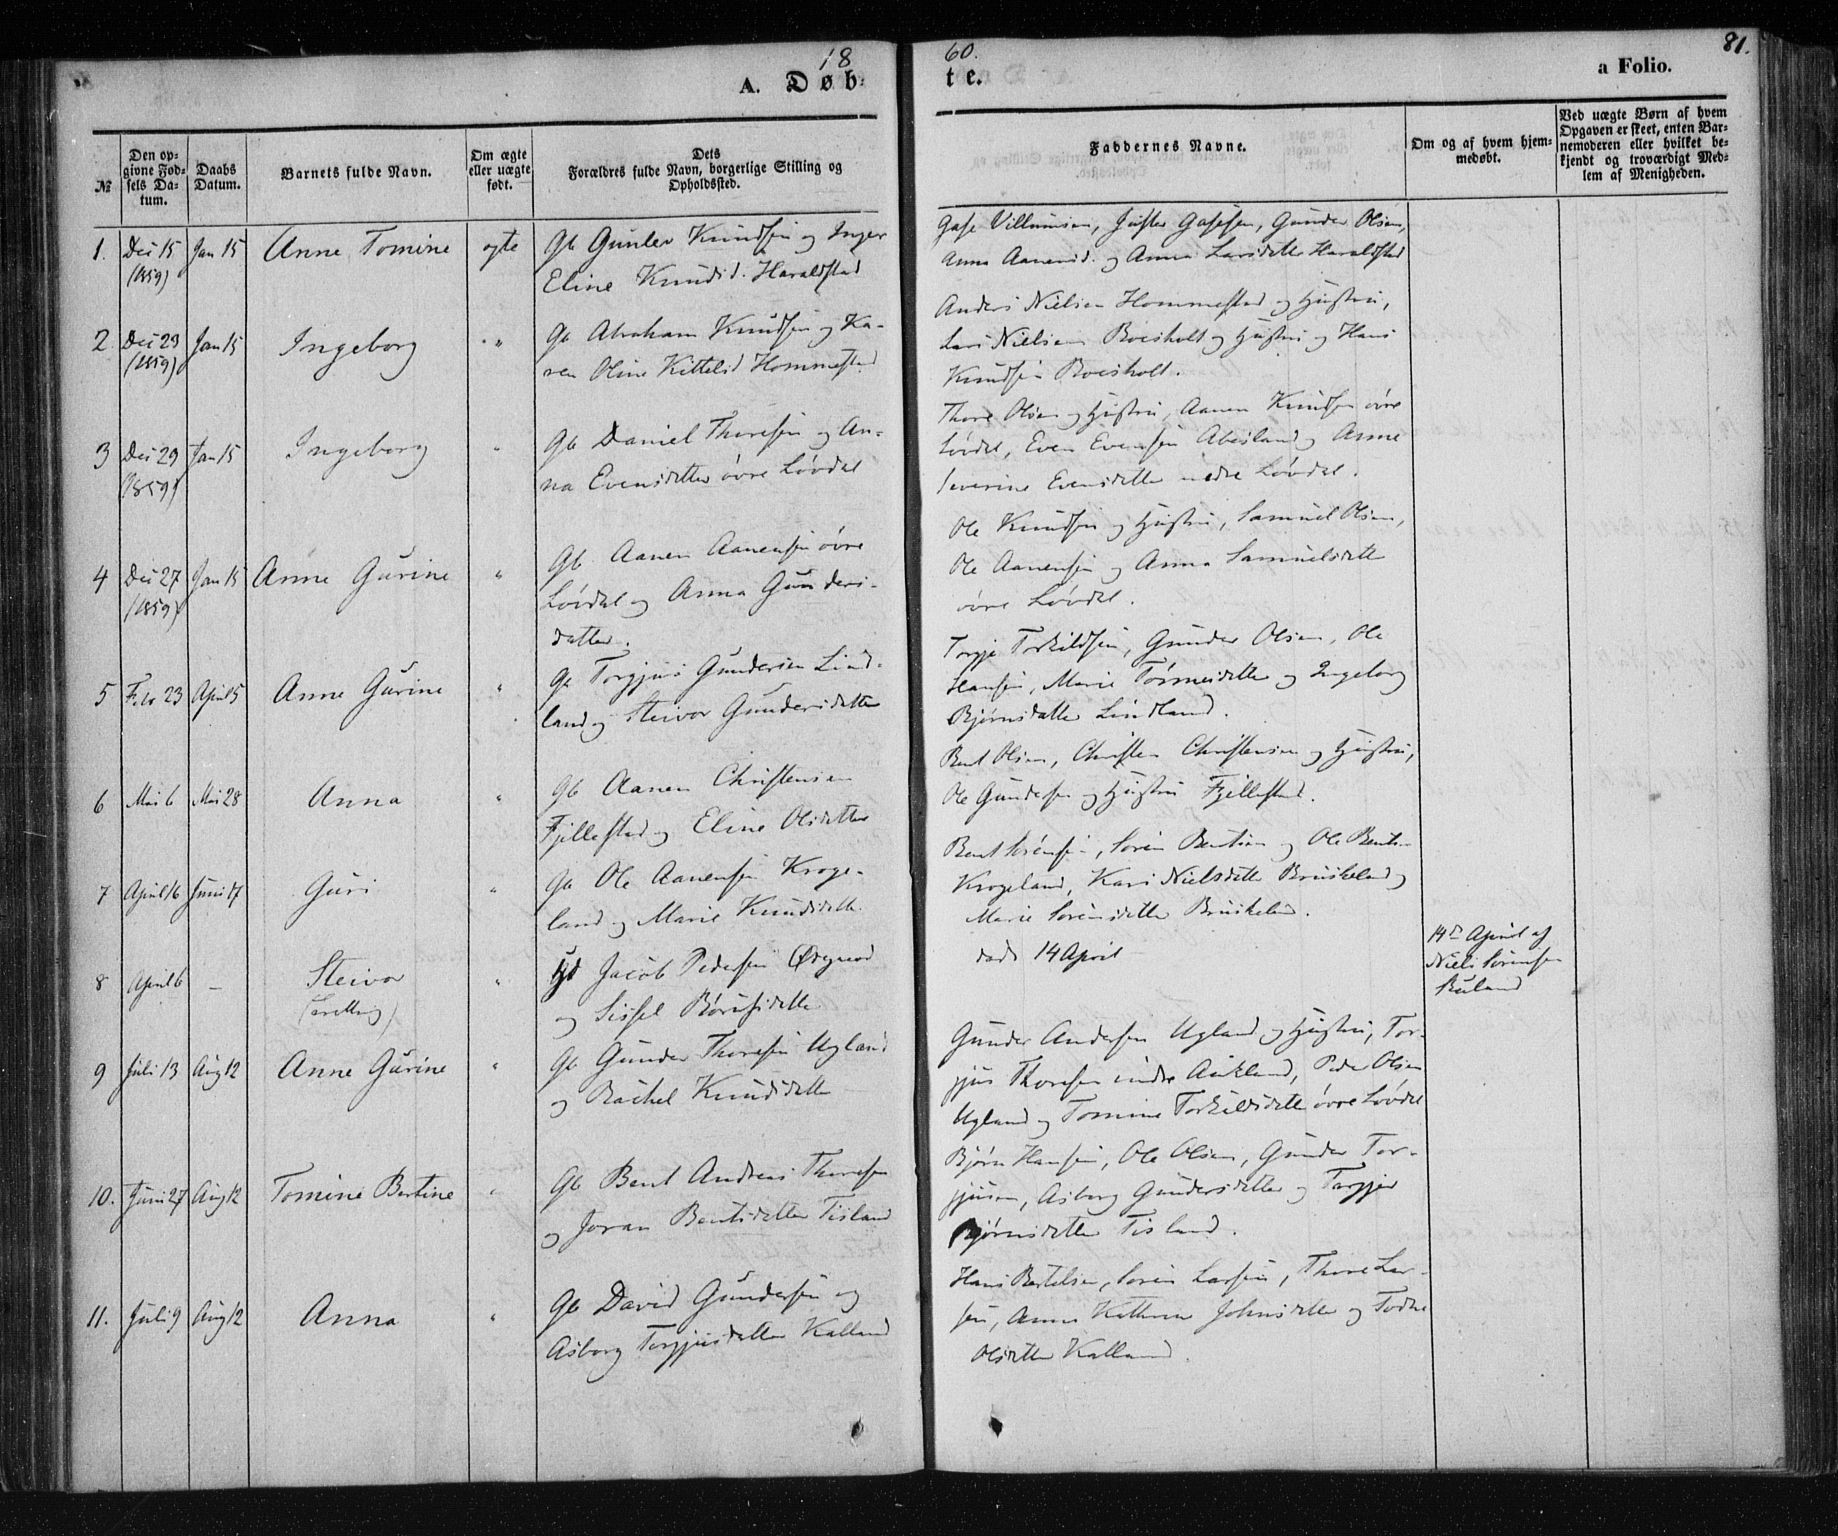 18 60. 81.
A. Døb- te. a Folio.
№ Den opgivne Fødsels Datum. Daabs Datum. Barnets fulde Navn. Om ægte eller uægte født. Dets Forældres fulde Navn, borgerlige Stilling og Opholdssted. Faddernes Navne. Om og af hvem hjemmedøbt. Ved uægte Børn af hvem Opgaven er skeet, enten Barnemoderen eller hvilket bekjendt og troværdigt Medlem af Menigheden.
1. Dec 15 Jan 15 Anne Tomine ægte Gb Gunlev Knudsen og Inger
(1859) Eline Knudsd. Haraldstad
Villumsen, Gunder Olsen,
Anna Aanensd. og Anna Larsdatter Haraldstad
2 Dec 29 Jan 15 Ingeborg " Gb Abraham Knudsen og Ka-
(1859) ren Oline Kittelsd Hommestad
Anders Nielsen Hommestad og Hustru,
Lars Nielsen Boesholt og Hustru og Hans
Knudsen Boesholt.
3 Dec 29 Jan 15 Ingeborg " Gb Daniel Thoresen og An-
(1859) na Evensdatter øvre Løvdal
Thore Olsen og Hustru, Aanen Knudsen øvre
Løvdal, Even Evensen Abesland og Anne
Severine Evensdatter nedre Løvdal.
4 Dec 27 Jan 15 Anne Gurine " Gb Aanen Aanensen øvre
(1859) Løvdal og Anna Gunders-
datter.
Ole Knudsen og Hustru, Samuel Olsen,
Ole Aanensen og Anna Samuelsdatter
øvre Løvdal.
5 Febr 23 April 5 Anne Gurine " Gb Torgjus Gundersen Lind-
land og Steivor Gundersdatter
Torgje Torkildsen, Gunder Olsen, Ole
Hansen, Marie Tørresdatter og Ingeborg
Bjørnsdatter Lindland.
6 Mai 6 Mai 28 Anna " Gb Aanen Christensen
Fjellestad og Eline Olsdatter
Bent Olsen, Christen Christensen og Hustru,
Ole Gundersen og Hustru Fjellestad.
7 April 16 Juni 17 Guri " Gb Ole Aanensen Kroge-
land og Marie Knudsdatter
Bent Sørensen, Søren Bentsen og Ole Bents.
Krogeland, Kari Nielsdatter Bruskeland og
Marie Sørensdatter Bruskeland.
8 April 6 – Steivor " Jacob Pedersen
(tvilling) og Sissel
død 14 April
14de April af
Niels Sørensen
9 Juli 13 Aug 12 Anne Gurine " Gb Gunder Thoresen Ugland
og Rachel Knudsdatter
Gunder Andersen Ugland og Hustru, Tor-
gjus Thoresen indre Aukland, Peder Olsen
Ugland og Tomine Torkildsdatter øvre Løvdal
10. Juni 27 Aug 12 Tomine Bertine " Gb Bent Andreas Thoresen
og Joran Bentsdatter Tisland
Bjørn Hansen, Ole Olsen, Gunder Tor-
gjusen, Asborg Gundersdatter og Torgjer
Bjørnsdatter Tisland.
11. Juli 9 Aug 12 Anna " Gb David Gundersen og
Asborg Torgjusdatter Kalland
Hans Bertelsen, Søren Larsen, Thore Lar-
sen, Anne Kathrine Johnsdatter og Todne
Olsdatter Kalland.